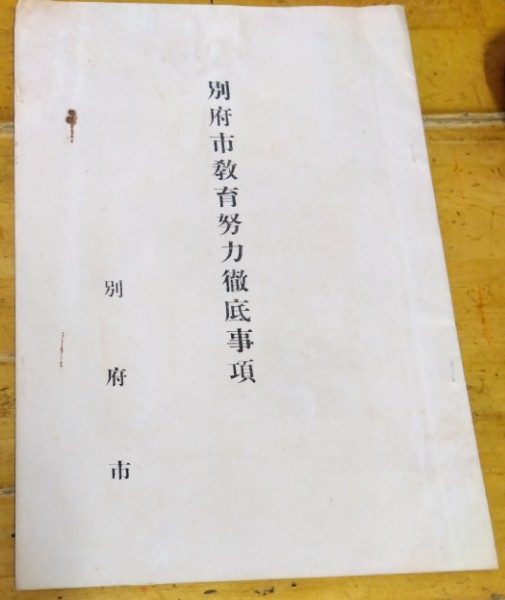 別府市教育努力徹底事項
別府市